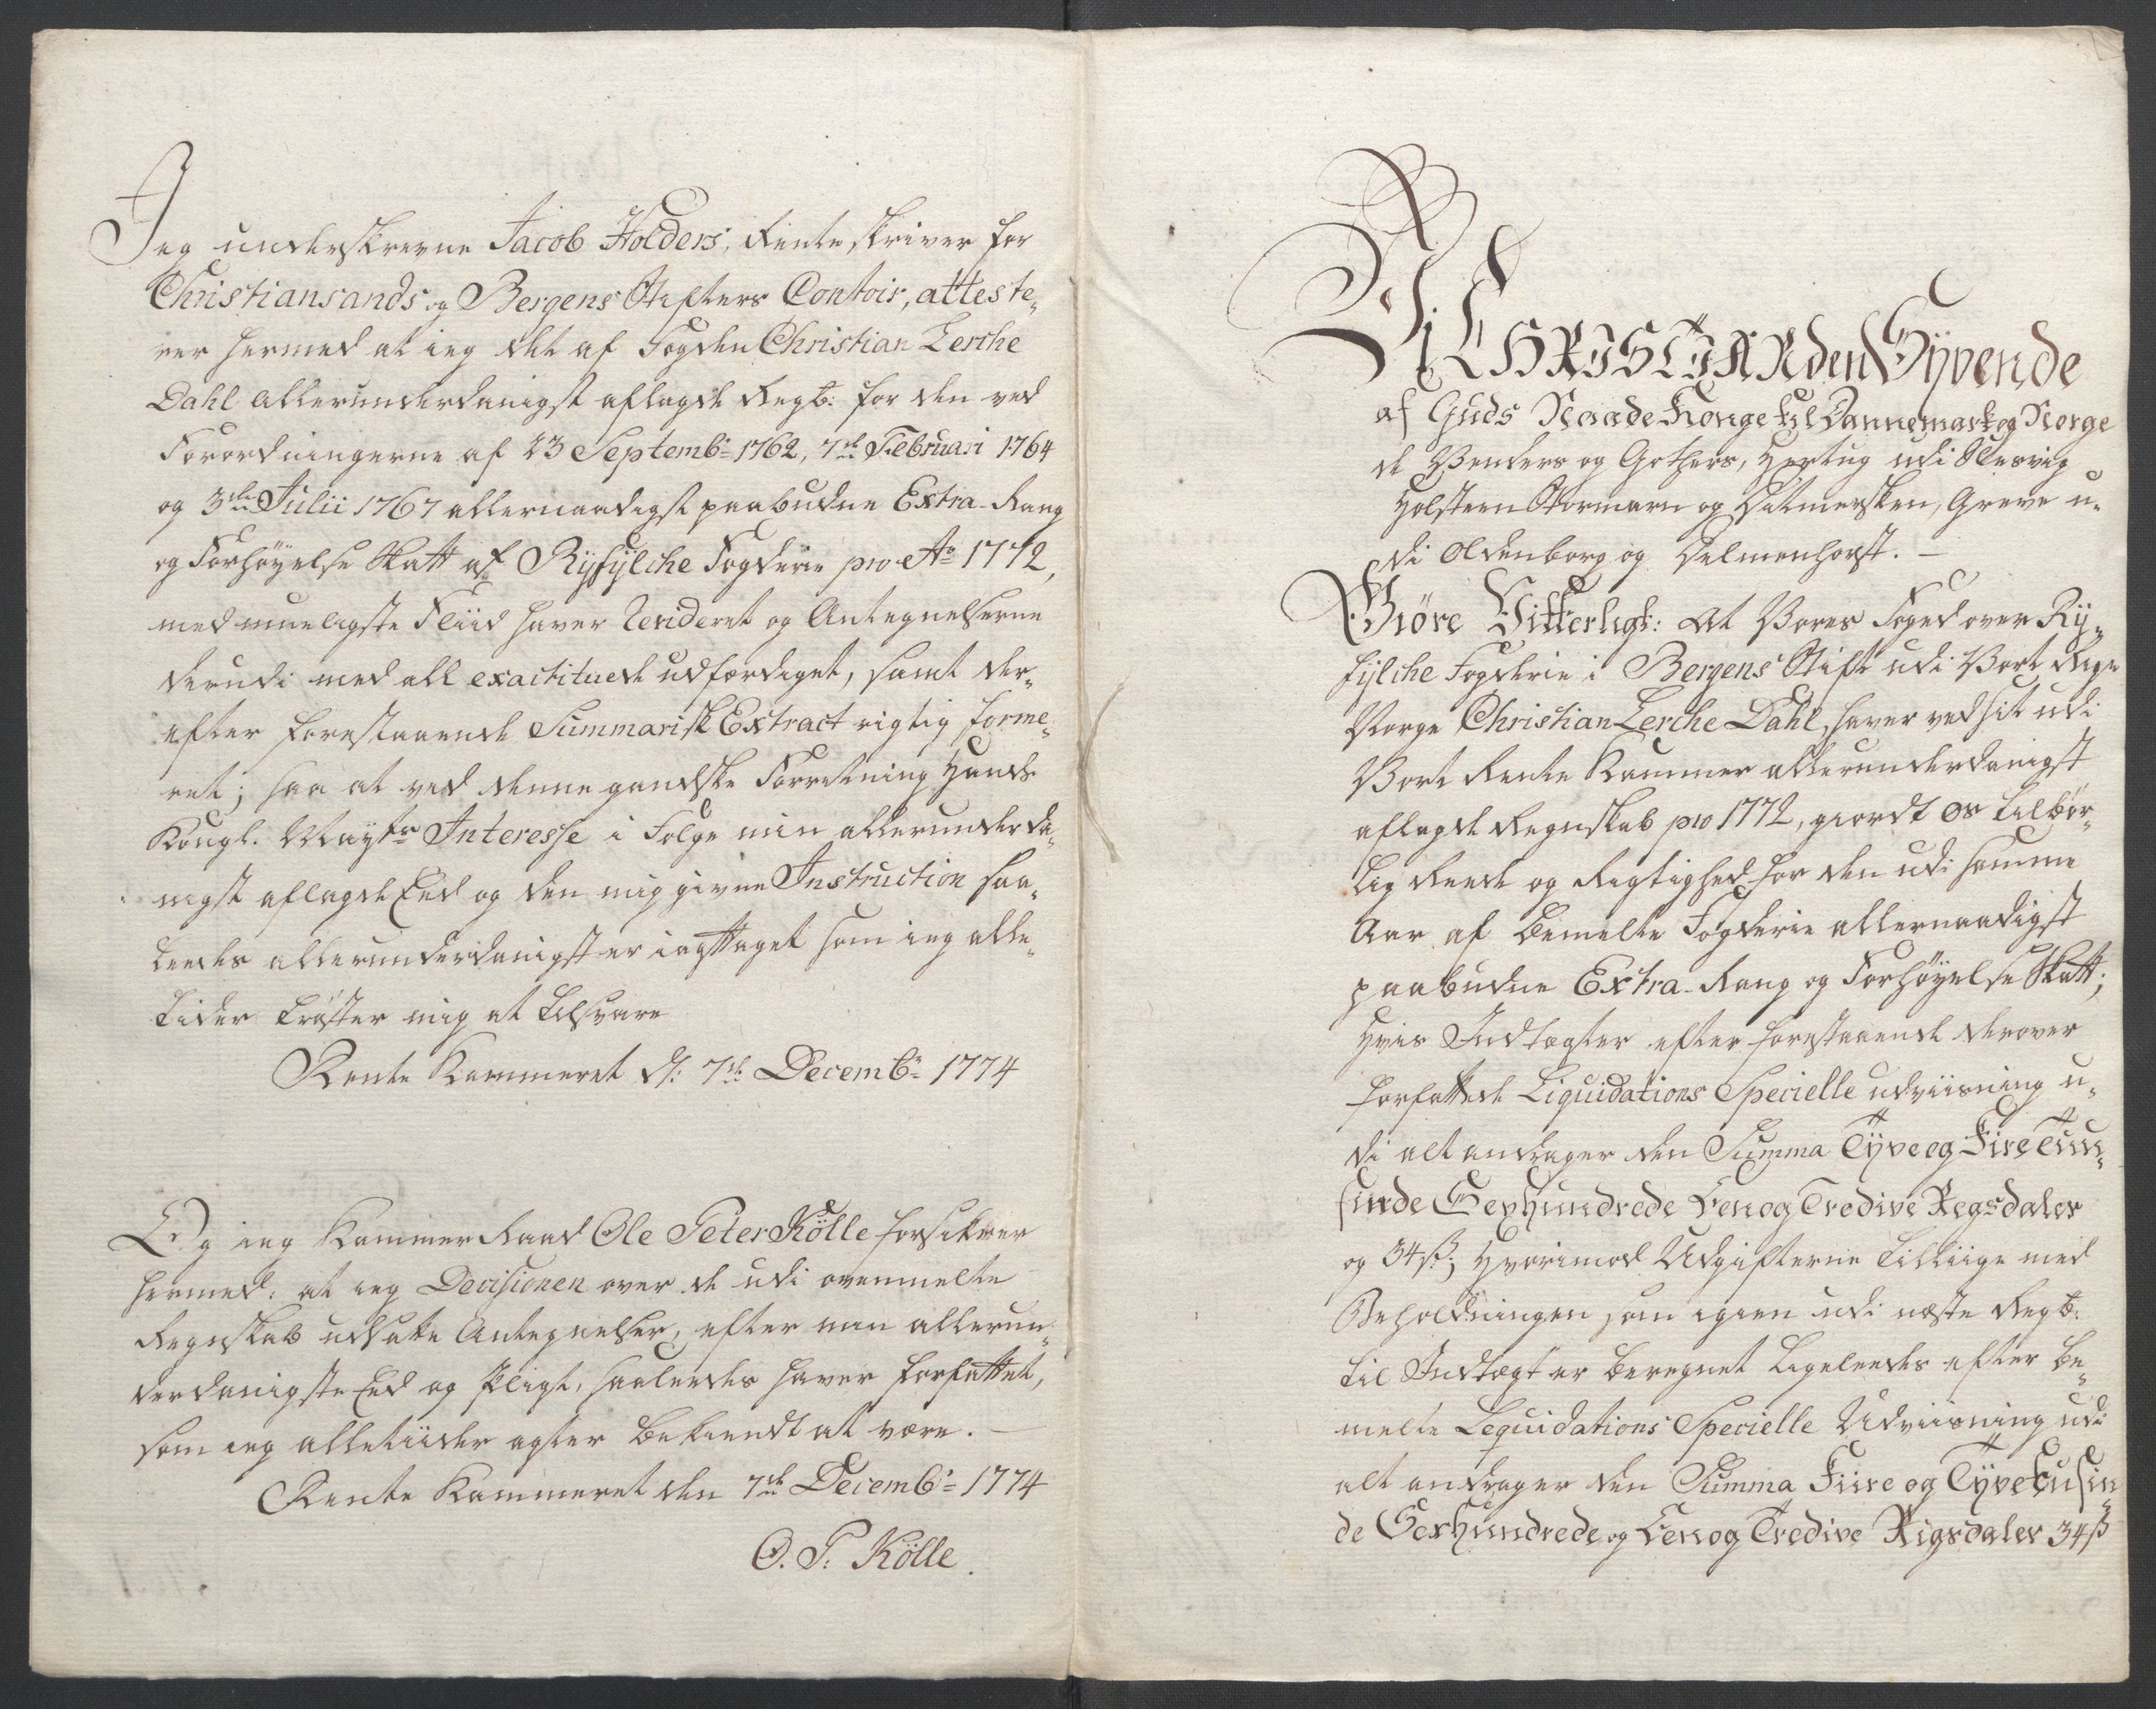 Jeg underskrevne Jacob Holders, Renteskriver for
Christiansands og Bergens Stifters Contoir, atteste-
rer hermed at jeg det af Fogden Christian Lerche
Dahl allerunderdanigst aflagde Regb: for den ved
Forordningerne af 23 Septembr 1762, 7de Februari 1764
og 3die Julii 1767 allernaadigst paabudne Extra- Rang
og Forhøyelse Skatt af Ryfylche Fogderie pro Ao 1772,
med mueligste Fliid haver revideret og Antegnelserne
derudi med all exactituede udfærdiget, samt der-
efter forestaaende Summarisk Extract rigtig forme-
ret; saa at ved denne gandske Forretning Hands
Kongl. Mayts Interesse i Følge min allerunderda-
nigst aflagde Eed og den mig givne Instruction saa-
leedes allerunderdanigst er iagttaget som jeg alle-
tider trøster mig at tilsvare
Rente Kammeret d: 7de Decembr 1774
Og jeg Kammer Raad Ole Peter Kølle forsikrer
hermed: at jeg Decisionen over de udi ovenmelte
Regnskab udsatte Antegnelser, efter min allerun-
derdanigste Eed og Pligt, saaleedes haver forfattet,
som jeg alletiider agter bekiendt at være.
Rente Kammeret den 7de Decembr 1774
O. P. Kølle.
Vi CHRISTIAN den Syvende
af Guds Naade Konge til Dannemark og Norge
de Venders og Gothers, Hertug udi Slesvig
Holsteen Stormarn og Ditmersken, Greve u-
di Oldenborg og Delmenhorst.
Giøre Vitterligt: At Vores Foged over Ry-
fylche Fogderie i Bergens Stift udi Vort Rige
Norge Christian Lerche Dahl, haver ved sit udi
Vort Rente Kammer allerunderdanigst
aflagde Regnskab pro 1772, giordt os tilbør-
lig Reede og Rigtighed for den udi samme
Aar af bemelte Fogderie allernaadigst
paabudne Extra- Rang og Forhøyelse Skatt;
Hvis Indtægter efter forestaaende derover
forfattede Liquidations Specielle udviisning u-
di alt andrager den Summa Tyve og Fire Tuu-
sinde Sexhundrede Een og Tredive Regsdaler
og 34 ß; Hvorimod Udgifterne tilliige med
Beholdningen som igien udi næste Regb:
til Indtægt er beregnet ligeleedes efter be-
melte Lequidations Specielle Udviisning udi
alt andrager den Summa Fiire og Tyve tusin-
de Sexhundrede og Een og Tredive Rigsdaler 34 ß